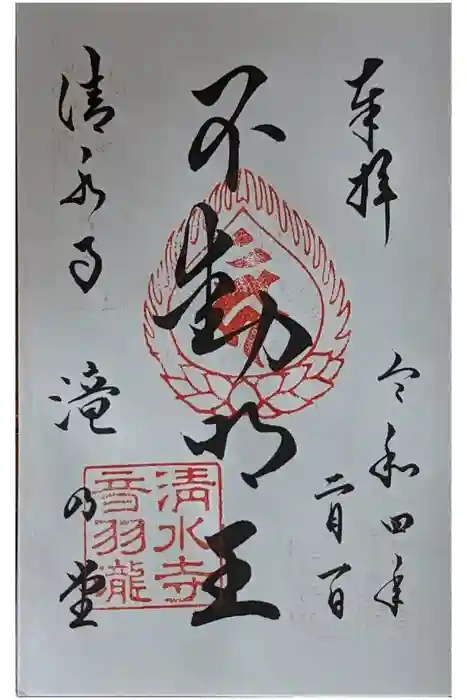 奉拝
令和四年
二月一日
不動明王
清水寺
滝乃堂
清水寺
音羽瀧